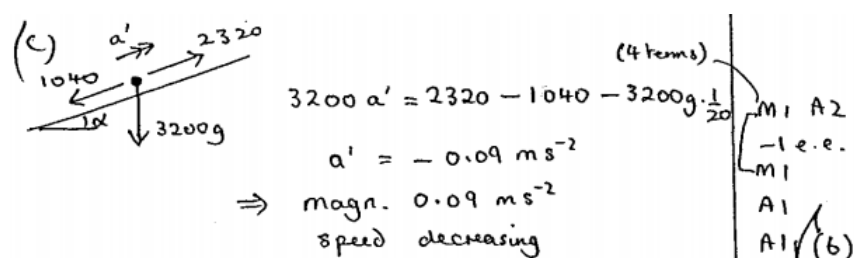 (c)
a'
2320
1040
α
3200g
(4 terms)
3200 a' = 2320 - 1040 - 3200g. 1/20
M1 A2
-1 e.e.
a' = - 0.09 ms⁻²
M1
⇒ magn. 0.09 ms⁻²
A1
speed decreasing
A1√ (6)